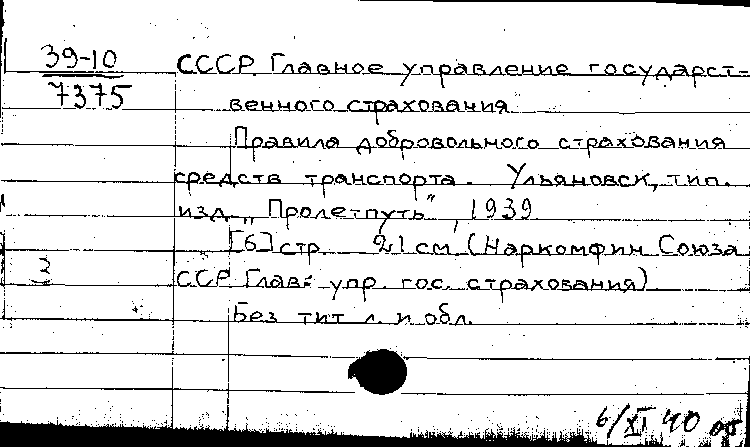 39-10
7375
СССР. Главное управление государст-
венного страхования
Правила добровольного страхования
средств транспорта. Ульяновск, тип.
изд. „Пролетпуть", 1939
[6] стр. 21 см. (Наркомфин Союза
2
ССР. Глав. упр. гос. страхования)
Без тит л. и обл.
6/XI 40